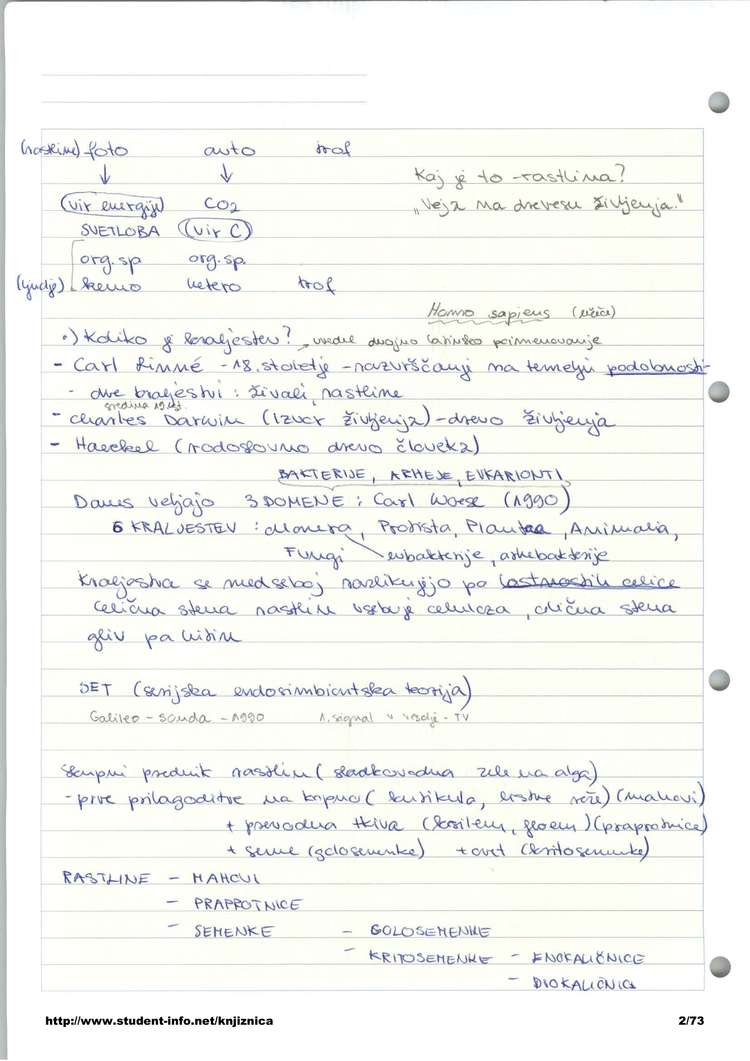 (rastline) foto auto trof
Kaj je to - rastlina?
(vir energije) CO2
„Veja na drevesu življenja."
SVETLOBA (vir C)
org. sp org. sp.
(ljudje) kemo hetero trof
Homo sapiens (učeči)
•) Koliko je kraljestev? uvedel dvojno latinsko poimenovanje
- Carl Linné - 18. stoletje - razvrščanji na temelju podobnosti-
- dve kraljestvi : živali, rastline
sredina 19. st.
- Charles Darwin (Izvor življenja) - drevo življenja
- Haeckel (rodoslovno drevo človeka)
BAKTERIJE, ARHEJE, EVKARIONTI
Danes veljajo 3 DOMENE : Carl Woese (1990)
6 KRALJESTEV : Monera, Protista, Plantae, Animalia,
Fungi eubakterije, arhebakterije
Kraljestva se med seboj razlikujejo po lastnostih celice
Celična stena rastlin vsebuje celuloza, celična stena
gliv pa hitin
SET (serijska endosimbiontska teorija)
Galileo - sonda - 1990 1. signal v vesolje - TV
Skupni prednik rastlin (sladkovodna zelena alga)
- prve prilagoditve na kopno (kutikula, listne reže) (mahovi)
+ prevodna tkiva (ksilem, floem) (praprotnice)
+ seme (golosemenke) + cvet (kritosemenke)
RASTLINE - MAHOVI
- PRAPROTNICE
- SEMENKE - GOLOSEMENKE
- KRITOSEMENKE - ENOKALIČNICE
- DVOKALIČNICE
http://www.student-info.net/knjiznica 2/73